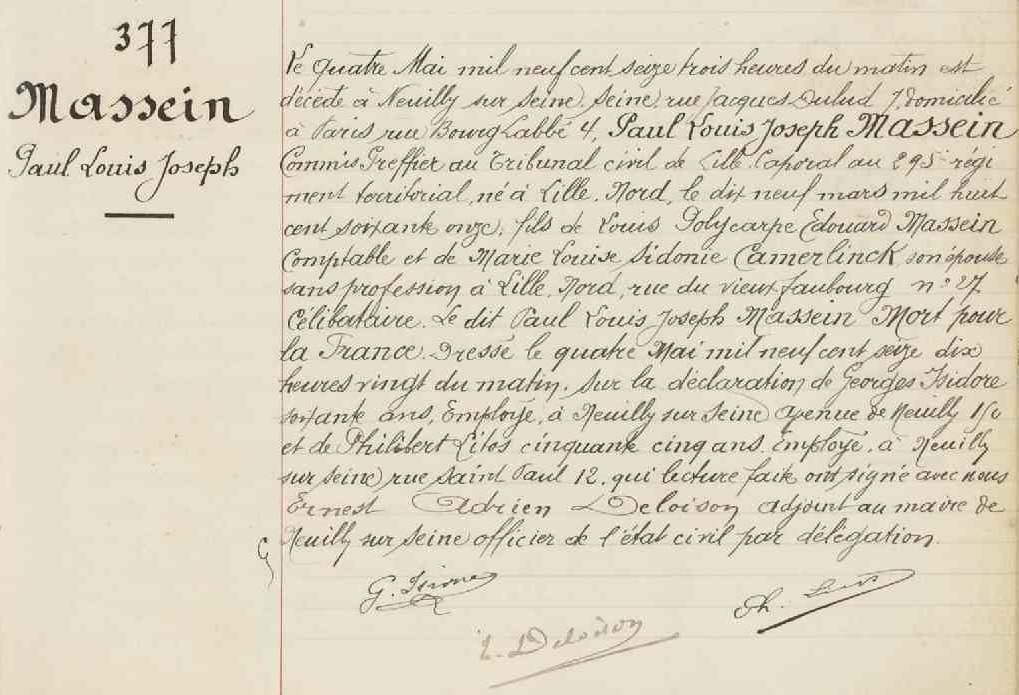 377
Massein
Paul Louis Joseph
Le quatre Mai mil neuf cent seize trois heures du matin est
décédé à Neuilly sur Seine, Seine, rue Jacques Dulud 7, domicilié
à Paris rue Bourg Labbé 4, Paul Louis Joseph Massein
Commis Greffier au Tribunal civil de Lille. Caporal au 295e régi
ment territorial, né à Lille, Nord, le dix neuf mars mil huit
cent soixante onze, fils de Louis Polycarpe Edouard Massein
Comptable et de Marie Louise Sidonie Camerlinck, son épouse
sans profession à Lille, Nord, rue du vieux faubourg n° 27
Célibataire. Le dit Paul Louis Joseph Massein Mort pour
la France. Dressé le quatre Mai mil neuf cent seize dix
heures vingt du matin. Sur la déclaration de Georges Isidore
soixante ans, Employé, à Neuilly sur Seine avenue de Neuilly
et de Philibert cinquante cinq ans. Employé, à Neuilly
sur Seine rue Saint Paul 12, qui lecture faite ont signé avec nous
Ernest Adrien Deloison adjoint au maire de
Neuilly sur Seine officier de l'état civil par délégation.
G.
Ph.
E. Deloison